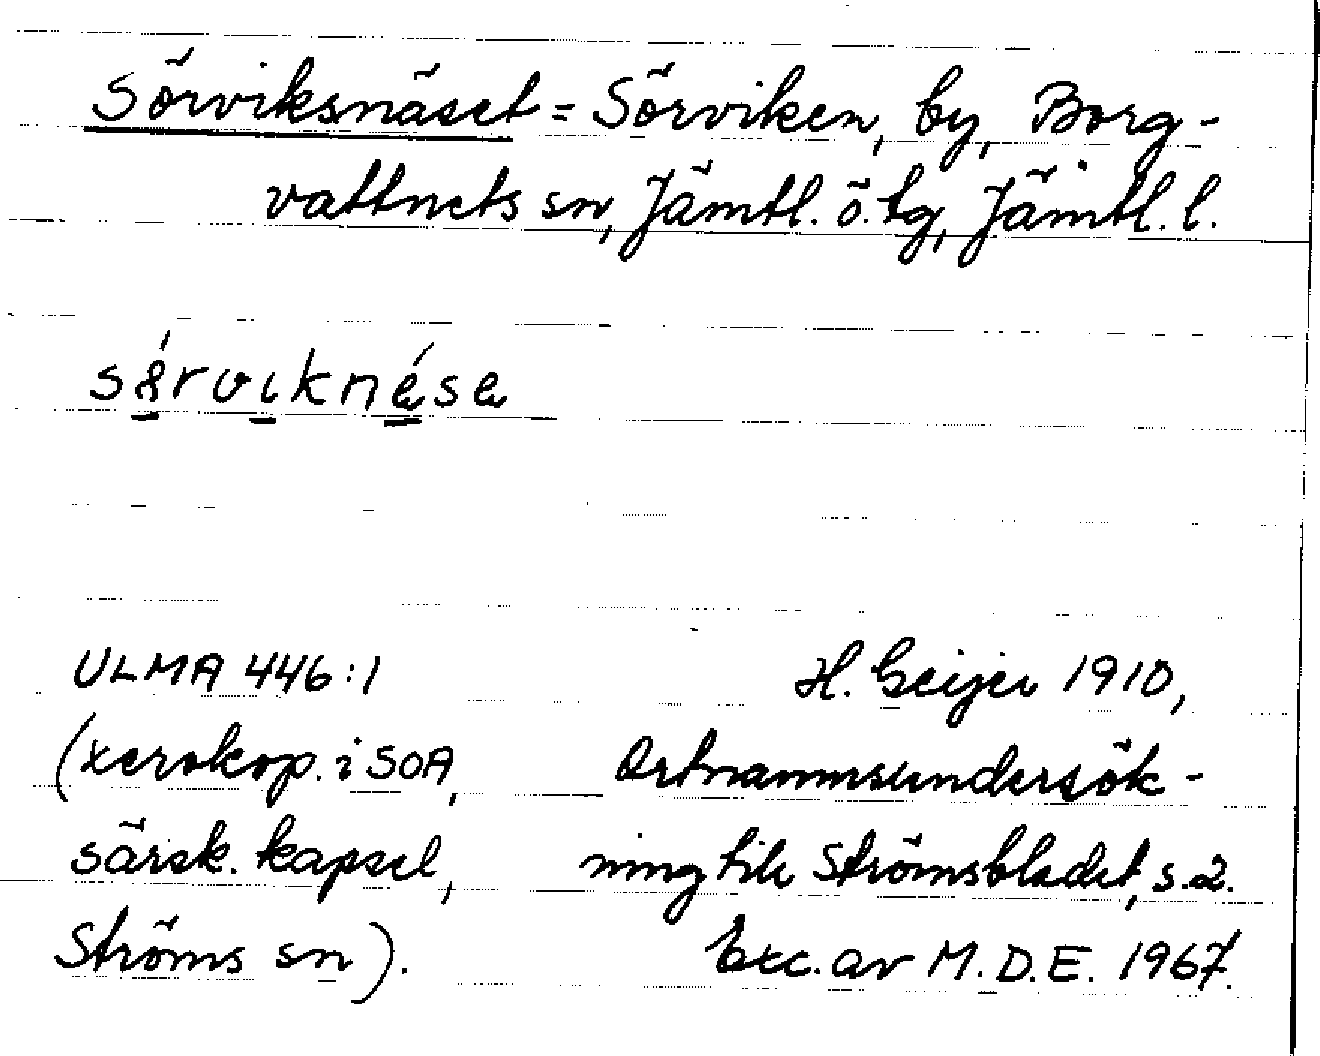 Sörviksnäset = Sörviken, by, Borg-
vattnets sn, Jämtl. ö. tg, Jämtl. l.
ULMA 446:1
(xerokop. i SOA,
särsk. kapsel,
Ströms sn).
H. Geijer 1910,
Ortnamnsundersök-
ning till Strömsbladet, s. 2.
Exc. av M.D.E. 1967.